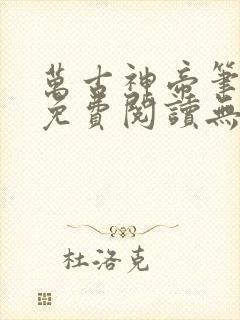 萬古神帝筆
免費閱讀無
杜洛克